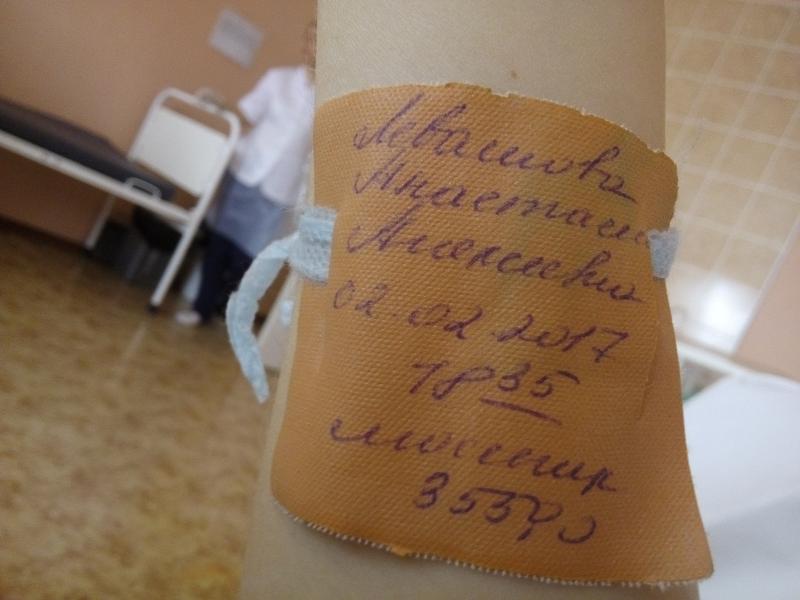 Левашова
Анастасия
Алексеевна
02.02.2017
18 35